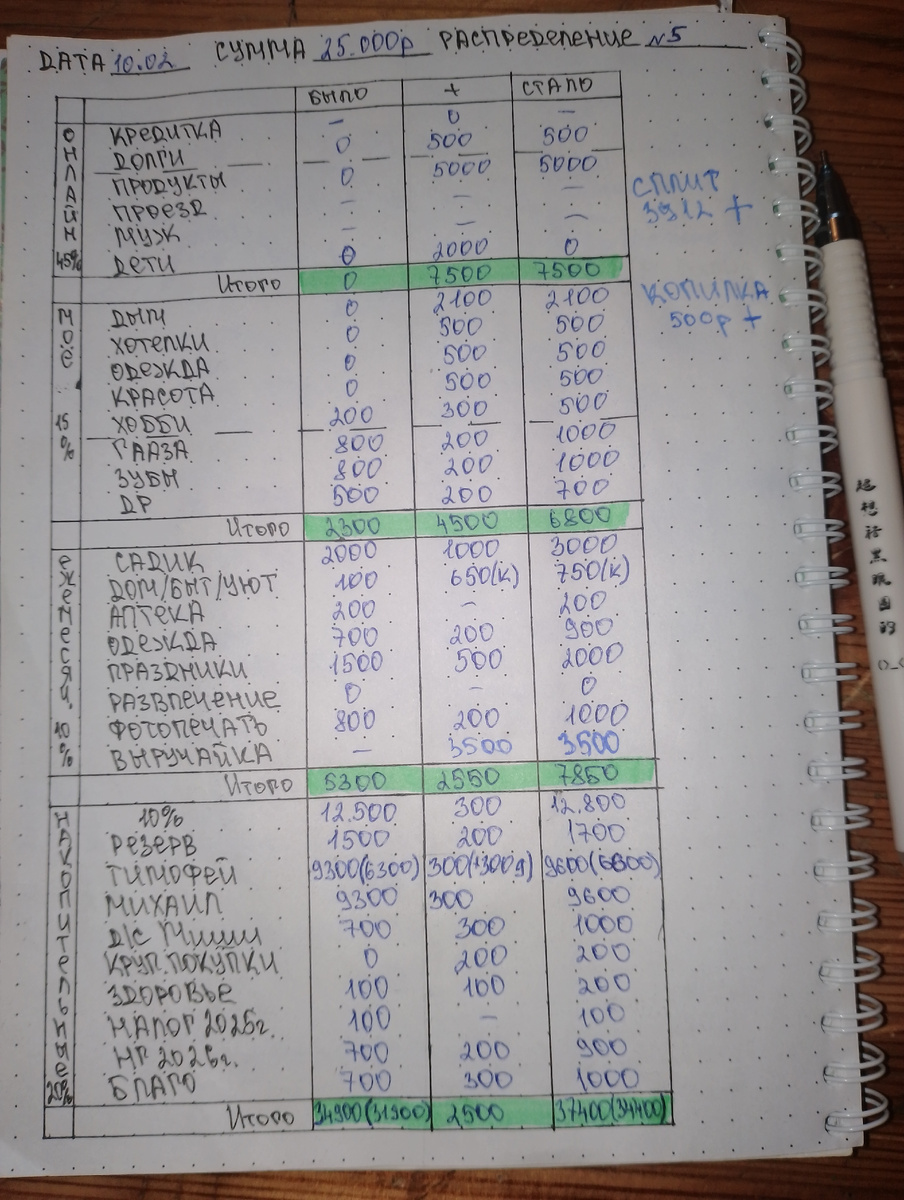 ДАТА 10.02 СУММА 25.000р РАСПРЕДЕЛЕНИЕ №5
БЫЛО + СТАЛО
ОНЛАЙН 45%
КРЕДИТКА – 0 –
ДОЛГИ 0 500 500
ПРОДУКТЫ 0 5000 5000
ПРОЕЗД – – –
МУЖ – – –
ДЕТИ 0 2000 0
Итого 0 7500 7500
МОЁ 15%
ДЫМ 0 2100 2100
ХОТЕЛКИ 0 500 500
ОДЕЖДА 0 500 500
КРАСОТА 0 500 500
ХОББИ 200 300 500
ГЛАЗА 800 200 1000
ЗУБЫ 800 200 1000
ДР 500 200 700
Итого 2300 4500 6800
ежемесяч. 10%
САДИК 2000 1000 3000
ДОМ/БЫТ/УЮТ 100 650(к) 750(к)
АПТЕКА 200 – 200
ОДЕЖДА 700 200 900
ПРАЗДНИКИ 1500 500 2000
РАЗВЛЕЧЕНИЕ 0 – 0
ФОТОПЕЧАТЬ 800 200 1000
ВЫРУЧАЙКА – 3500 3500
Итого 5300 2550 7850
НАКОПИТЕЛЬНЫЕ 20%
10% 12.500 300 12.800
РЕЗЕРВ 1500 200 1700
ТИМОФЕЙ 9300(6300) 300(+300д) 9600(6600)
МИХАИЛ 9300 300 9600
Д/С Миши 700 300 1000
КРУП.ПОКУПКИ 0 200 200
ЗДОРОВЬЕ 100 100 200
НАЛОГ 2026г. 100 – 100
НГ 2026г. 700 200 900
БЛАГО 700 300 1000
Итого 34900(31900) 2500 37400(34400)
СПЛИТ
3912 +
КОПИЛКА
500р +